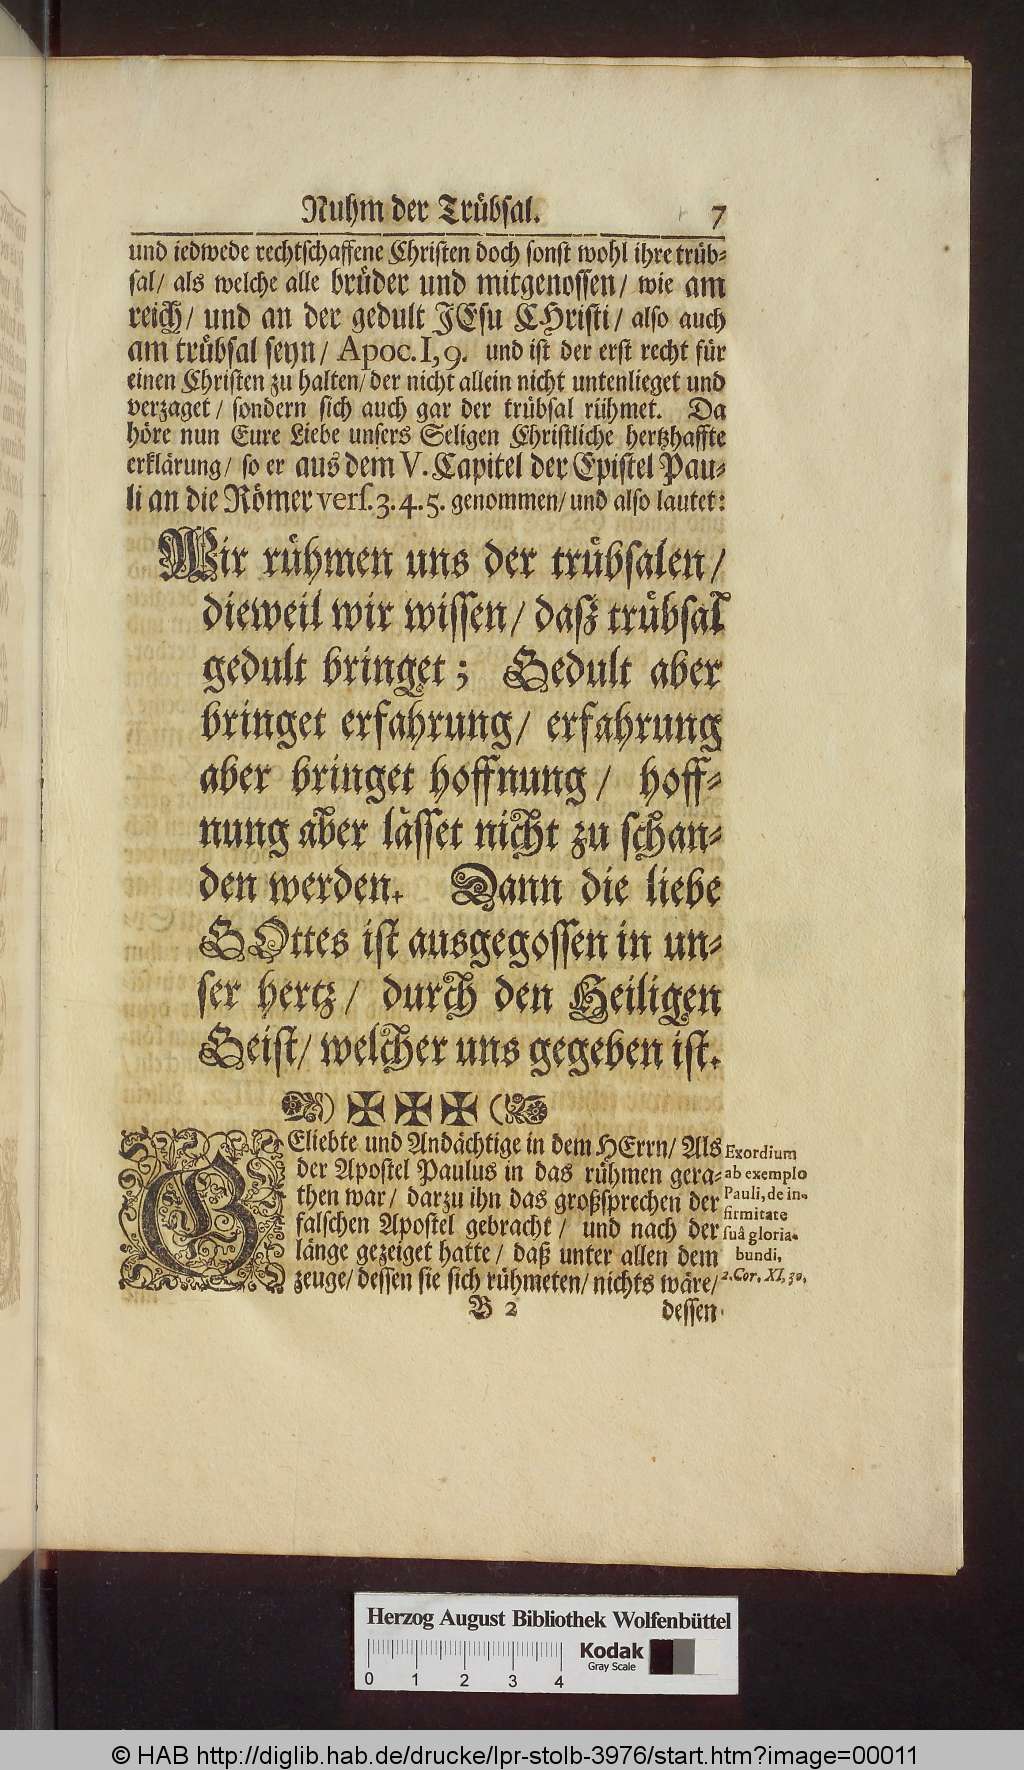 Ruhm der Trübsal. 7
und iedwede rechtschaffene Christen doch sonst wohl ihre trüb-
sal/ als welche alle brüder und mitgenossen/ wie am
reich/ und an der gedult JEsu CHristi/ also auch
am trübsal seyn/ Apoc. I, 9. und ist der erst recht für
einen Christen zu halten/ der nicht allein nicht untenlieget und
verzaget/ sondern sich auch gar der trübsal rühmet. Da
höre nun Eure Liebe unsers Seligen Christliche hertzhaffte
erklärung/ so er aus dem V. Capitel der Epistel Pau-
li an die Römer vers. 3. 4. 5. genommen/ und also lautet:
Wir rühmen uns der trübsalen/
dieweil wir wissen/ daß trübsal
gedult bringet; Gedult aber
bringet erfahrung/ erfahrung
aber bringet hoffnung/ hoff-
nung aber lässet nicht zu schan-
den werden. Dann die liebe
GOttes ist ausgegossen in un-
ser hertz/ durch den Heiligen
Geist/ welcher uns gegeben ist.
GEliebte und Andächtige in dem HErrn/ Als
der Apostel Paulus in das rühmen gera-
then war/ darzu ihn das großsprechen der
falschen Apostel gebracht/ und nach der
länge gezeiget hatte/ daß unter allen dem
zeuge/ dessen sie sich rühmeten/ nichts wäre/
Exordium
ab exemplo
Pauli, de in-
firmitate
suâ gloria-
bundi,
2. Cor. XI, 30.
B 2 dessen
Herzog August Bibliothek Wolfenbüttel
0 1 2 3 4
Kodak
Gray Scale
© HAB http://diglib.hab.de/drucke/lpr-stolb-3976/start.htm?image=00011